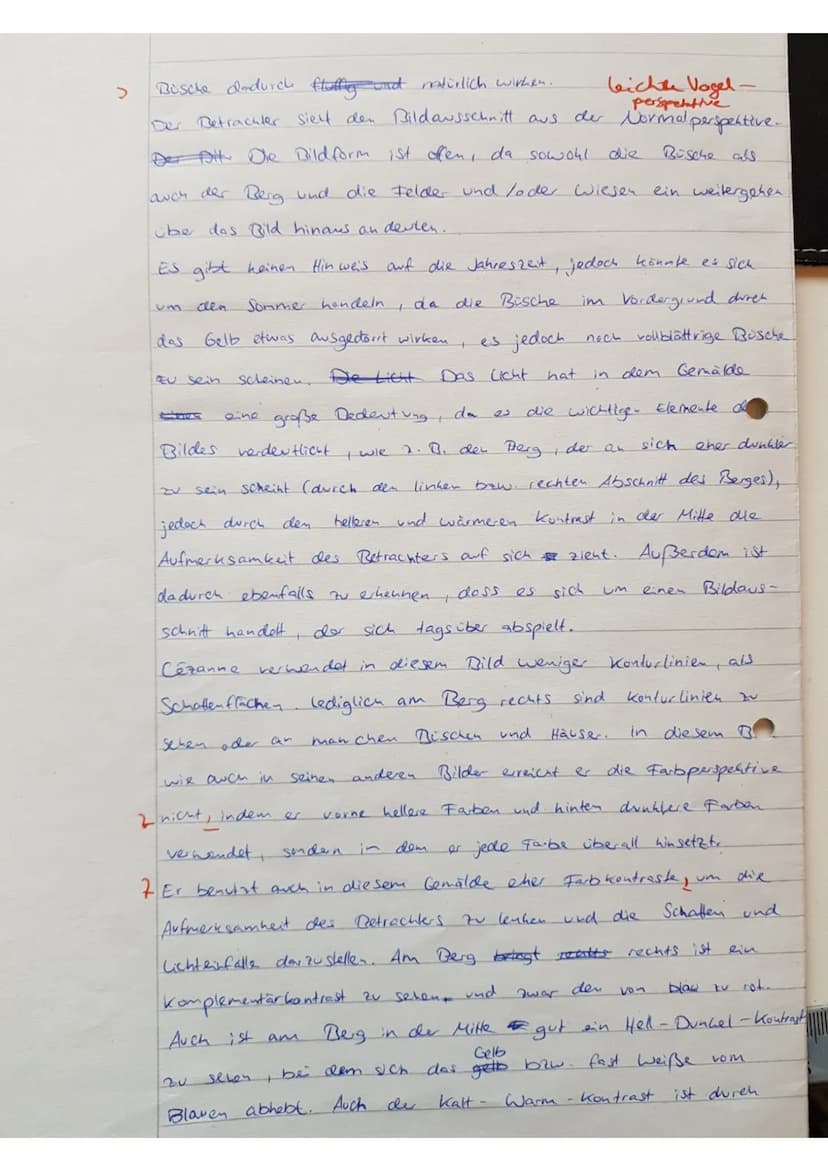 > Büsche dadurch fluffig und natürlich wirken. leichte Vogel-
perspektive
Der Betrachter sieht den Bildausschnitt aus der Normalperspektive.
Die Bildform ist offen, da sowohl die Büsche als
auch der Berg und die Felder und/oder Wiesen ein weitergehen
über das Bild hinaus andeuten.
Es gibt keinen Hinweis auf die Jahreszeit, jedoch könnte es sich
um den Sommer handeln, da die Büsche im Vordergrund durch
das Gelb etwas ausgedörrt wirken, es jedoch noch vollblättrige Büsche
zu sein scheinen. Die Licht Das Licht hat in dem Gemälde
eine große Bedeutung, da es die wichtigen Elemente de
Bildes verdeutlicht, wie z.B. den Berg, der an sich eher dunkler
zu sein scheint (durch den linken bzw. rechten Abschnitt des Berges),
jedoch durch den helleren und wärmeren Kontrast in der Mitte die
Aufmerksamkeit des Betrachters auf sich zieht. Außerdem ist
dadurch ebenfalls zu erkennen, dass es sich um einen Bildaus-
schnitt handelt, der sich tagsüber abspielt.
Cézanne verwendet in diesem Bild weniger Konturlinien, als
Schattenflächen. Lediglich am Berg rechts sind Konturlinien zu
sehen oder an manchen Büschen und Häuser. In diesem B
wie auch in seinen anderen Bilder erreicht er die Farbperspektive
nicht, indem er vorne hellere Farben und hinten dunklere Farben
verwendet, sondern in dem er jede Farbe überall hinsetzt.
Z Er benutzt auch in diesem Gemälde eher Farbkontraste, um die
Aufmerksamkeit des Betrachters zu lenken und die Schatten und
Lichteinfälle darzustellen. Am Berg bringt rechts ist ein
Komplementärkontrast zu sehen, und zwar den von blau zu rot.
Auch ist am Berg in der Mitte gut ein Hell-Dunkel-Kontrast
Gelb
zu sehen, bei dem sich das gelb bzw. fast Weiße vom
Blauen abhebt. Auch der Kalt-Warm-Kontrast ist durch